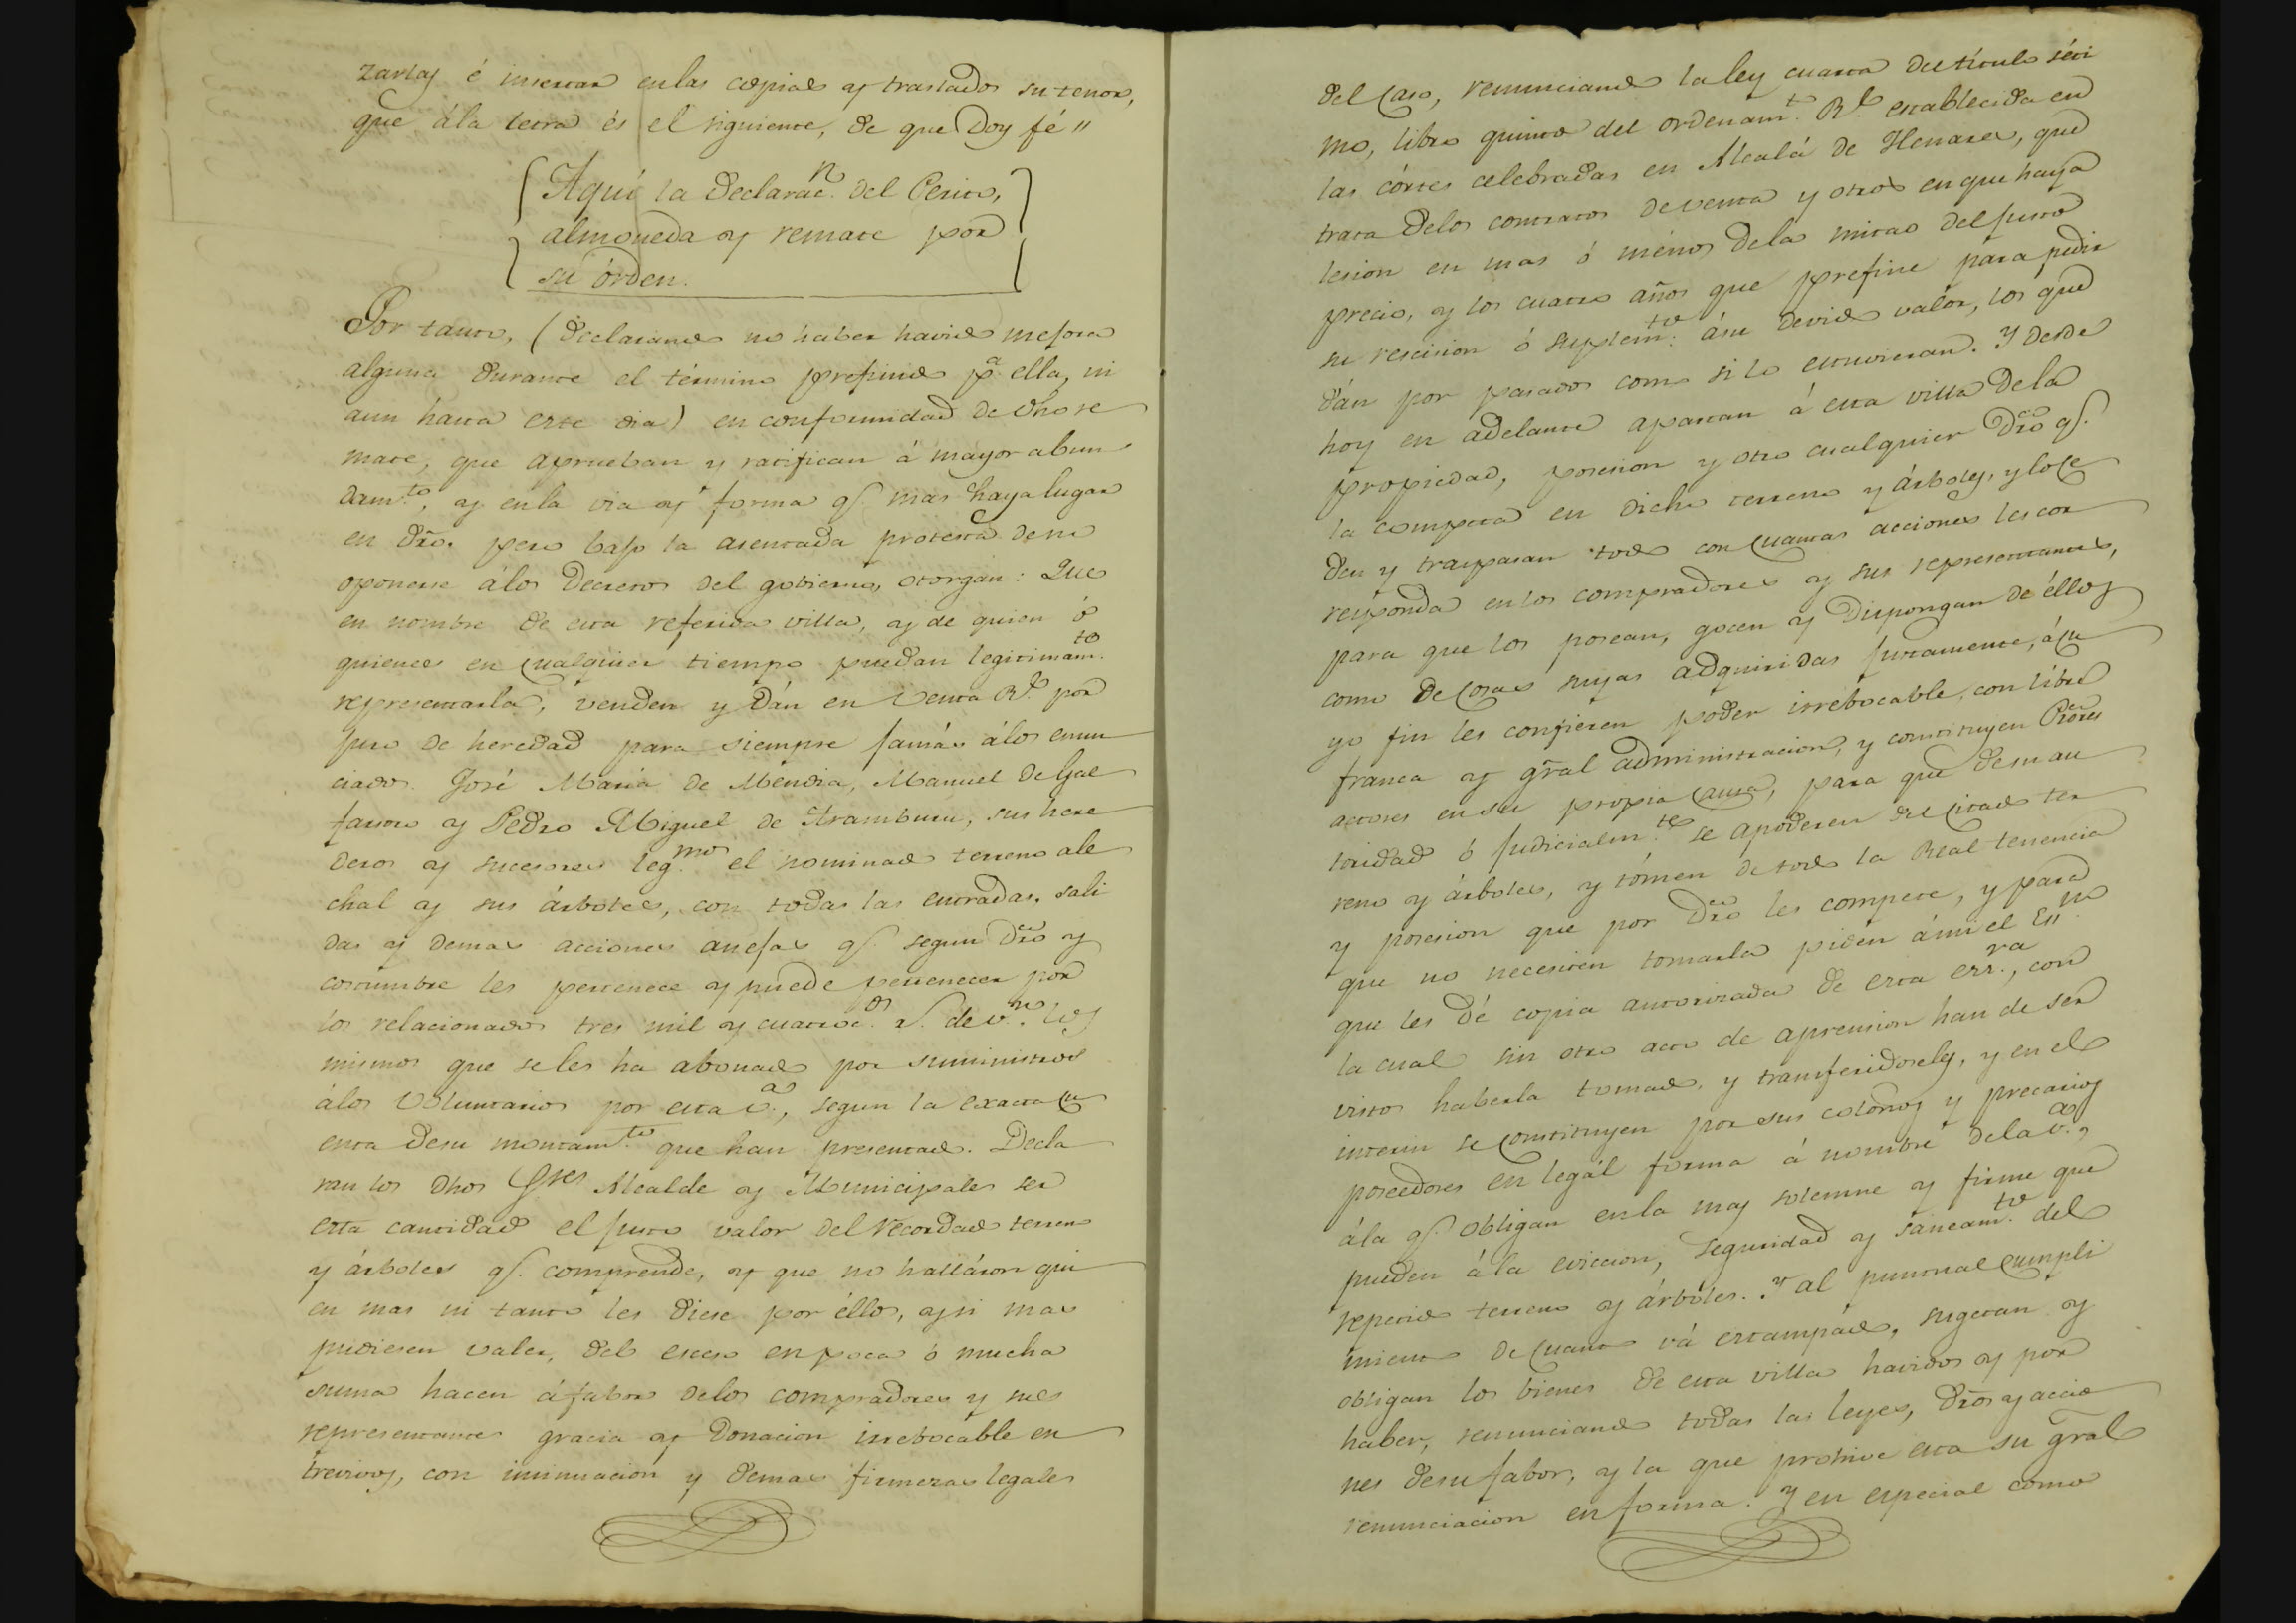 zarlas é insertar en las copias y traslados su tenor,
que á la letra és el siguiente, de que Doy fé "
Aquí la declarac.n del Perito,
almoneda y remate por
su órden.
Por tanto, (declarando no haber havido mejora
alguna durante el término prefinido p.a ella, ni
aun hasta este dia) en conformidad de dho re
mate, que aprueban y ratifican á mayor abun
dam.to, y en la via y forma q.e mas haya lugar
en dro. pero bajo la asentada protesta de no
oponerse á los Decretos del gobierno, otorgan: Que
en nombre de esta referida villa, y de quien ó
quienes en cualquier tiempo puedan legitimam.te
representarla, venden y dán en Venta R.l por
juro de heredad para siempre jamás á los enun
ciados José Maria de Mendia, Manuel de Gal
farsoro y Pedro Miguel de Aramburu, sus here
deros y sucesores leg.mos el nominado terreno ale
chal y sus árboles, con todas las entradas, sali
das y demas acciones anejas q.e segun dro y
costumbre les pertenece y puede pertenecer por
los relacionados tres mil y cuatroc.os r.s de v.n los
mismos que se les ha abonado por suministros
á los Voluntarios por esta v.a, segun la exacta cu
enta de su montam.to que han presentado. Decla
ran los dhos Sres Alcalde y Municipales ser
esta cantidad el justo valor del recordado terreno
y árboles q.e comprende, y que no halláron qui
en mas ni tanto les diese por éllos, y si mas
pudiesen valer, del exceso en poca ó mucha
suma hacen á fabor de los compradores y sus
representantes gracia y Donacion irrebocable en
trevivos, con insinuación y demas firmezas legales
del caso, renunciando la ley cuarta del título séti
mo, libro quinto del ordenam.to R.l establecida en
las córtes celebradas en Alcalá de Henares, que
trata de los contratos de venta y otros en que haya
lesion en mas ó ménos de la mitad del justo
precio, y los cuatro años que prefine pára pedir
su rescision ó suplem.to á su devido valór, los que
dán por pasados como si lo estuvieran. Y desde
hoy en adelante apartan á esta villa de la
propiedad, posesion y otro cualquier dro q.e
la competa en dicho terreno y árboles, y lo ce
den y traspasan todo con cuantas acciones les cor
responda en los compradores y sus representantes,
para que los posean, gocen y dispongan de éllos
como de cosas suyas adquiridas justamente, á cu
yo fin les confieren poder irrebocable, con libre
franca y gral administracion, y constituyen Prores
actores en su propia causa, para que de su au
toridad ó judicialm.te se apoderen del citado ter
reno y árboles, y tómen de todo la Real tenencia
y posesion que por dro les compete, y para
que no necesiten tomarla piden á mi el Ess.no
que les dé copia autorizada de esta ess.ra, con
la cual sin otro acto de aprension han de ser
visto haberla tomado, y transferidoseles, y en el
interin se constituyen por sus colonos y precarios
poseedores en legál forma á nombre de la v.a,
á la q.e obligan en la mas solemne y firme que
pueden á la eviccion, seguridad y saneam.to del
repetido terreno y árboles. Y al puntual cumpli
miento de cuanto vá estampádo, sugetan y
obligan los bienes de esta villa havidos y por
haber, renunciando todas las leyes, dros y accio
nes de su fabor, y la que prohive esta su gral
renunciacion en forma. Y en especial como